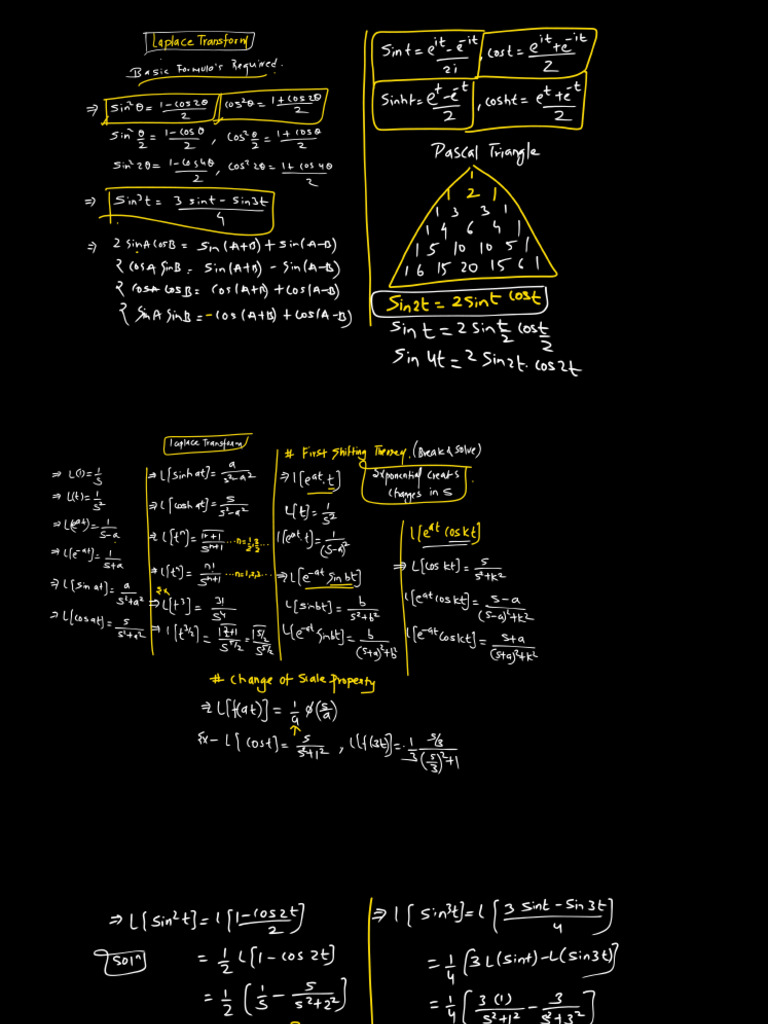 Laplace Transform
Basic Formula's Required.
⇒ Sin²θ = 1-cos2θ/2 , cos²θ = 1+cos2θ/2
Sin²θ/2 = 1-cosθ/2 , cos²θ/2 = 1+cosθ/2
Sin²2θ = 1-cos4θ/2 , cos²2θ = 1+cos4θ/2
⇒ Sin³t = 3 sint - Sin3t/4
⇒ 2 SinA cosB = Sin(A+B) + Sin(A-B)
2 cosA SinB = Sin(A+B) - Sin(A-B)
2 cosA cosB = cos(A+B) + cos(A-B)
2 SinA SinB = -cos(A+B) + cos(A-B)
Sint = e^it - e^-it/2i , cost = e^it + e^-it/2
Sinht = e^t - e^-t/2 , cosht = e^t + e^-t/2
Pascal Triangle
1
1 2 1
1 3 3 1
1 4 6 4 1
1 5 10 10 5 1
1 6 15 20 15 6 1
Sin2t = 2 Sint cost
Sint = 2 Sint/2 cost/2
Sin4t = 2 Sin2t. cos2t
Laplace Transform
⇒ L(1) = 1/S
⇒ L(t) = 1/S²
⇒ L(e^at) = 1/S-a
⇒ L(e^-at) = 1/S+a
⇒ L[sinat] = a/S²+a²
⇒ L[cosat] = S/S²+a²
⇒ L[sinhat] = a/S²-a²
⇒ L[coshat] = S/S²-a²
⇒ L[tⁿ] = Γn+1/Sⁿ⁺¹ ...n=1/2,3/2...
⇒ L[tⁿ] = n!/Sⁿ⁺¹ ...n=1,2,3...
Ex
⇒ L[t³] = 3!/S⁴
⇒ L[t^3/2] = Γ3/2+1/S^5/2 = Γ5/2/S^5/2
# First Shifting Theory. (Break & solve)
⇒ L[e^at. t]
Exponential creats
changes in S
L[t] = 1/S²
L[e^at. t] = 1/(S-a)²
⇒ L[e^-at Sinbt]
L[sinbt] = b/S²+b²
L[e^-at Sinbt] = b/(S+a)²+b²
L[e^at coskt]
⇒ L[coskt] = S/S²+k²
L[e^at coskt] = S-a/(S-a)²+k²
L[e^-at coskt] = S+a/(S+a)²+k²
# Change of Scale Property
⇒ L[f(at)] = 1/a φ(S/a)
Ex- L[cost] = S/S²+1² , L[f(3t)] = 1/3 S/3/(S/3)²+1
⇒ L[Sin²t] = L[1-cos2t/2]
Solⁿ
= 1/2 L[1-cos2t]
= 1/2 [1/S - S/S²+2²]
⇒ L[Sin³t] = L[3 Sint - Sin3t/4]
= 1/4 [3L(sint) - L(sin3t)]
= 1/4 [3(1)/S²+1² - 3/S²+3²]